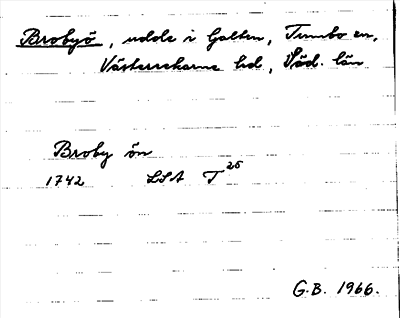 Brobyö, udde i Galten, Tumbo sn,
Västerrekarne hd, Söd. län
Broby ön
1742 LSA T 26
G.B. 1966.